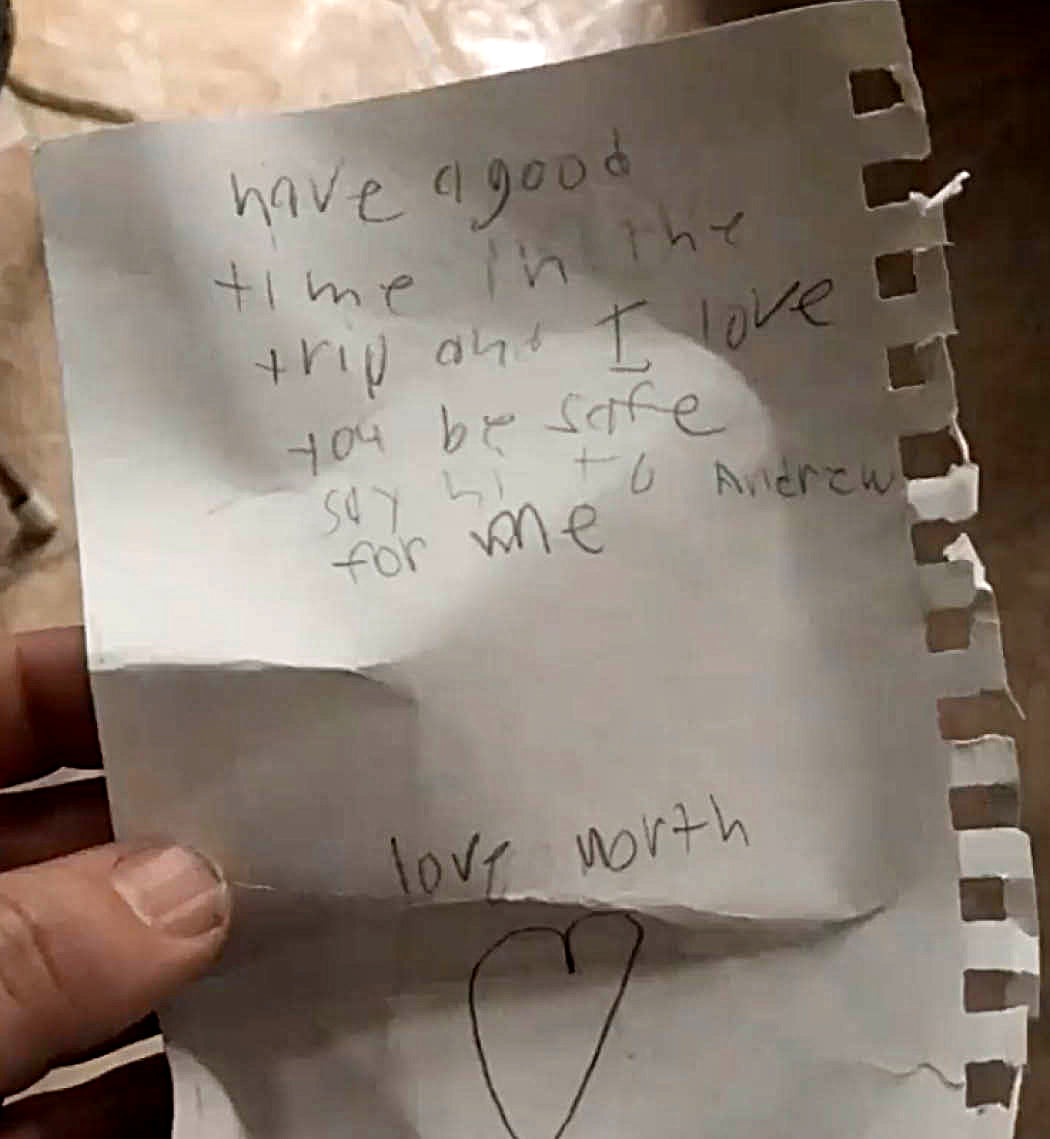 have a good
time in the
trip and I love
you be safe
say hi to Andrew
for me
love north